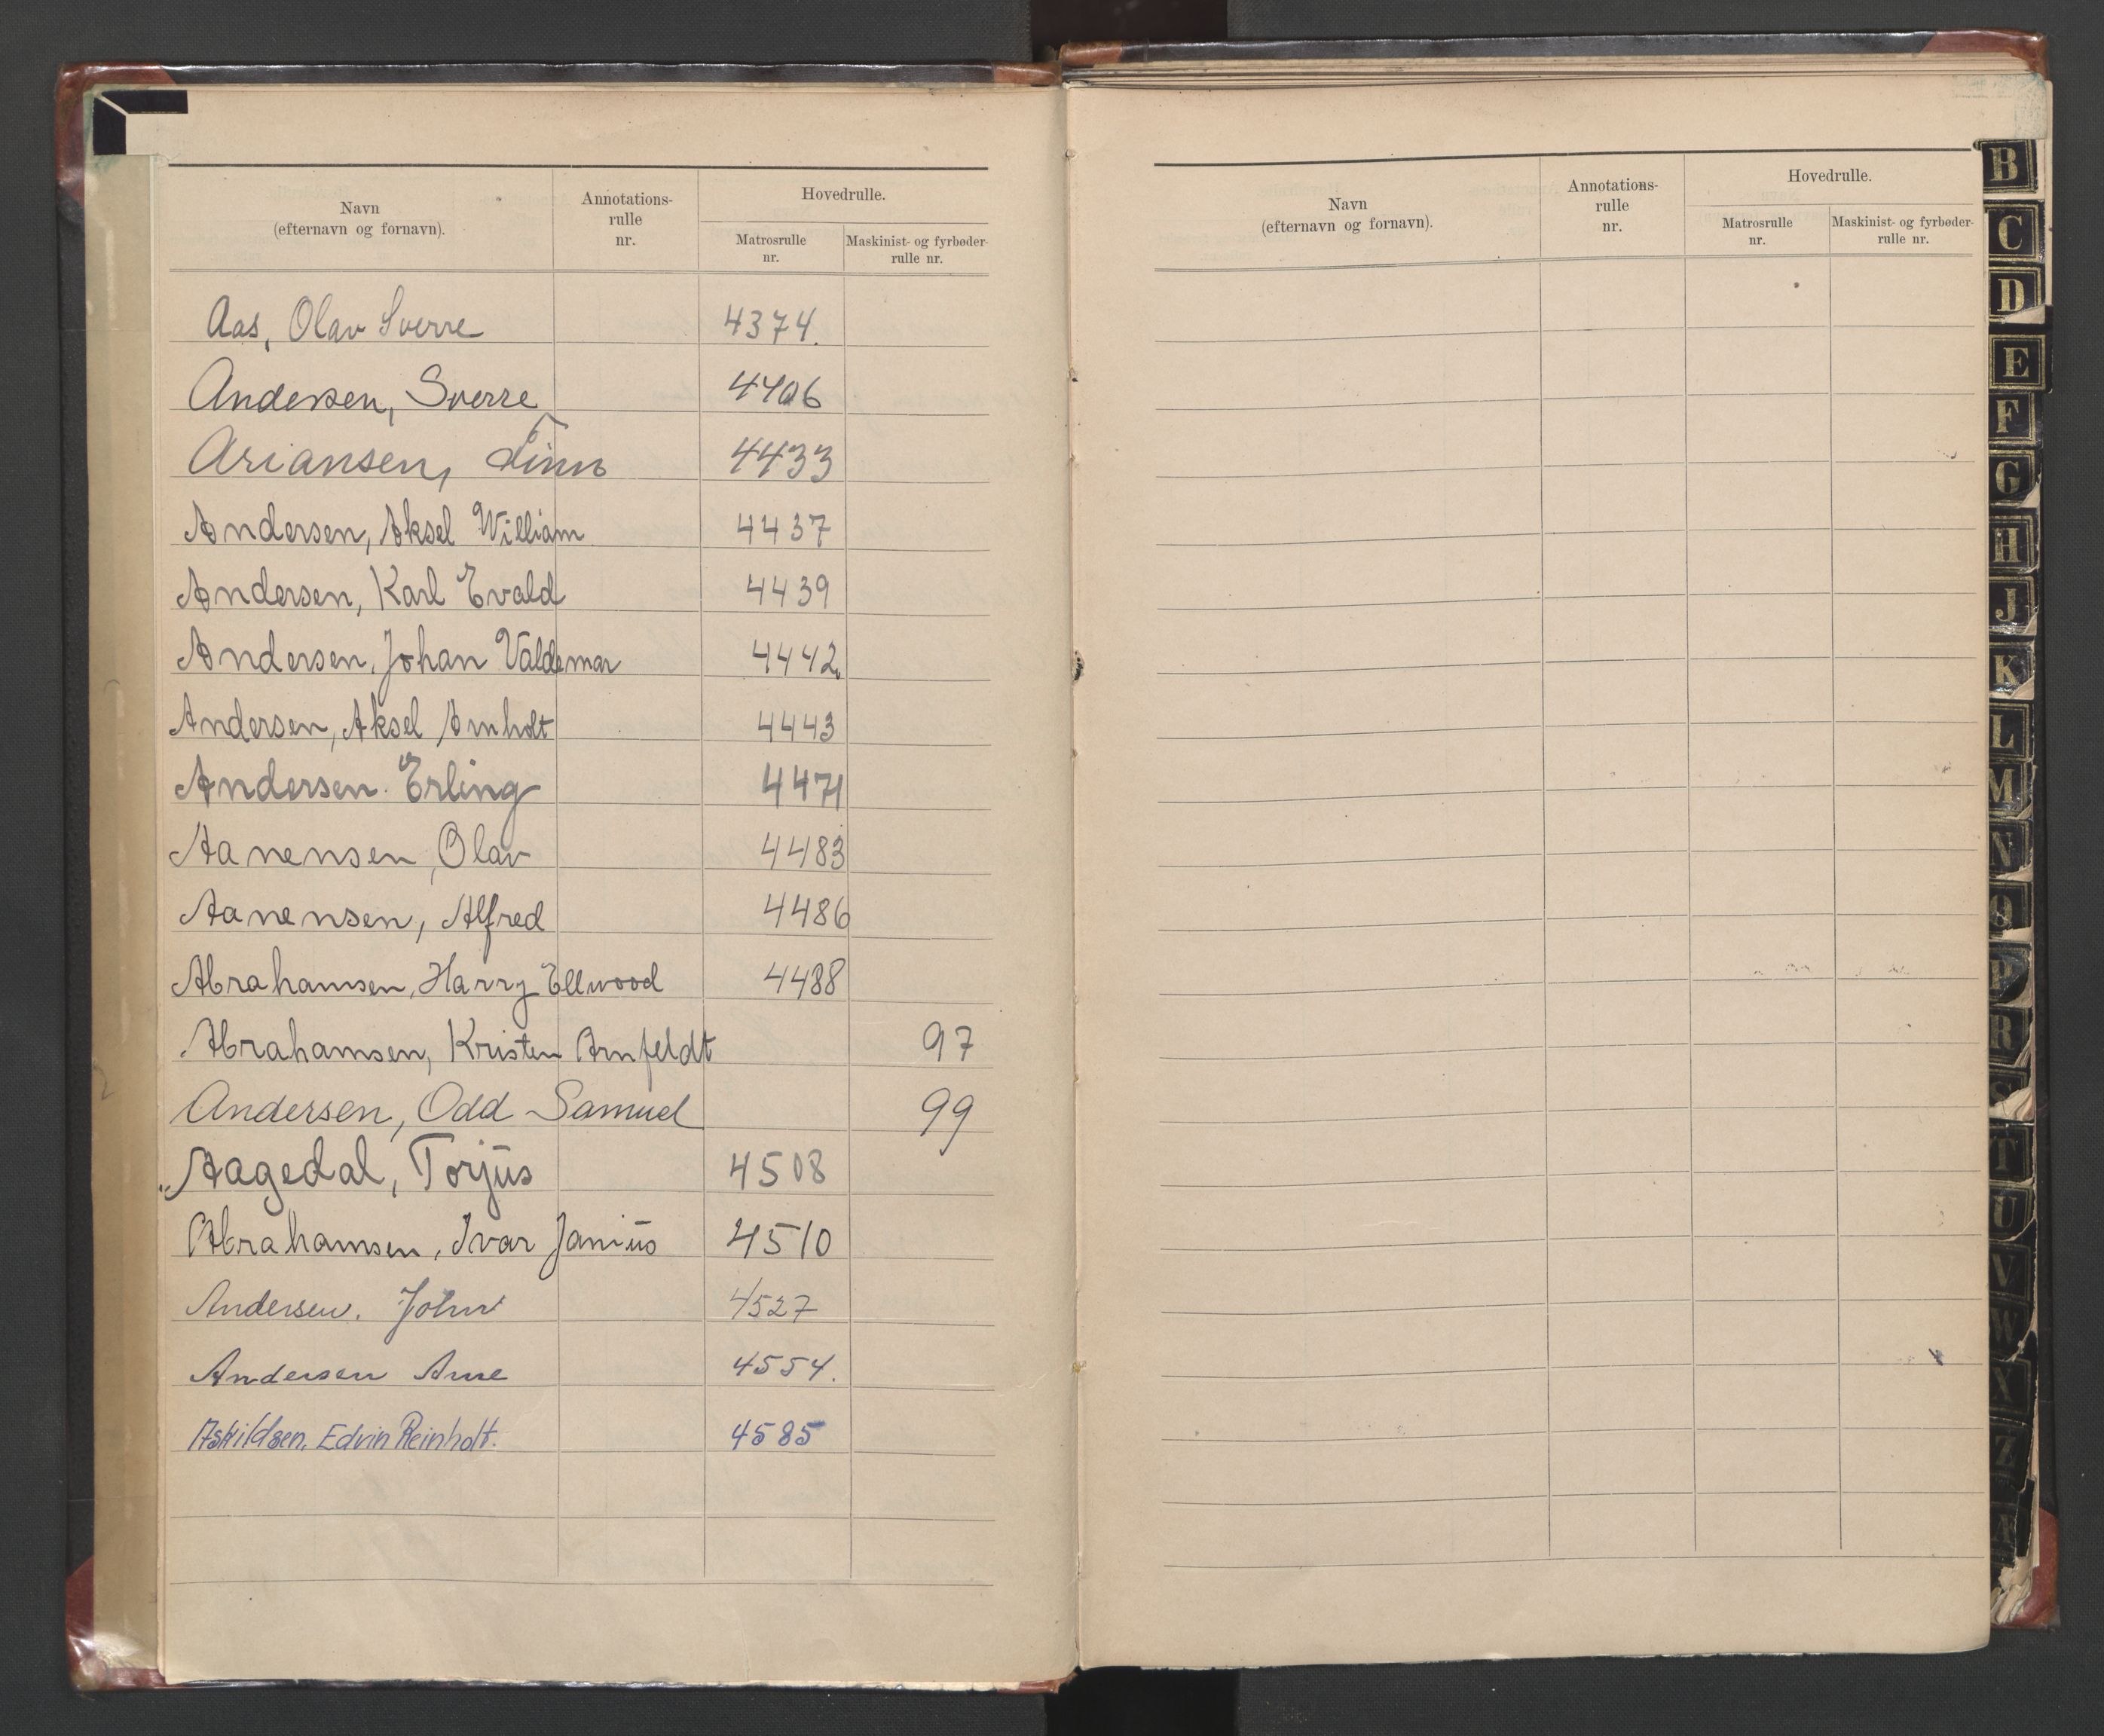 Navn
(efternavn og fornavn).
Annotations-
rulle
nr.
Hovedrulle.
Matrosrulle
nr.
Maskinist- og fyrbøder-
rulle nr.
Aas, Olav Sverre 4374.
Andersen, Sverre 4406
Ariansen, Finn 4433
Andersen, Aksel William 4437
Andersen, Karl Evald 4439
Andersen, Johan Valdemar 4442
Andersen, Aksel Arnholt 4443
Andersen. Erling 4471
Aanensen, Olav 4483
Aanensen, Alfred 4486
Abrahamsen, Harry Ellwood 4488
Abrahamsen, Kristen Arnfeldt 97
Andersen, Odd Samuel 99
Aagedal, Torjus 4508
Abrahamsen, Ivar Janius 4510
Andersen. John 4527
Andersen Arne 4554.
Askildsen, Edvin Reinholt. 4585
Navn
(efternavn og fornavn).
Annotations-
rulle
nr.
Hovedrulle.
Matrosrulle
nr.
Maskinist- og fyrbøder-
rulle nr.
B
C
D
E
F
G
H
J
K
L
M
N
O
P
R
S
T
U
V
W
X
Z